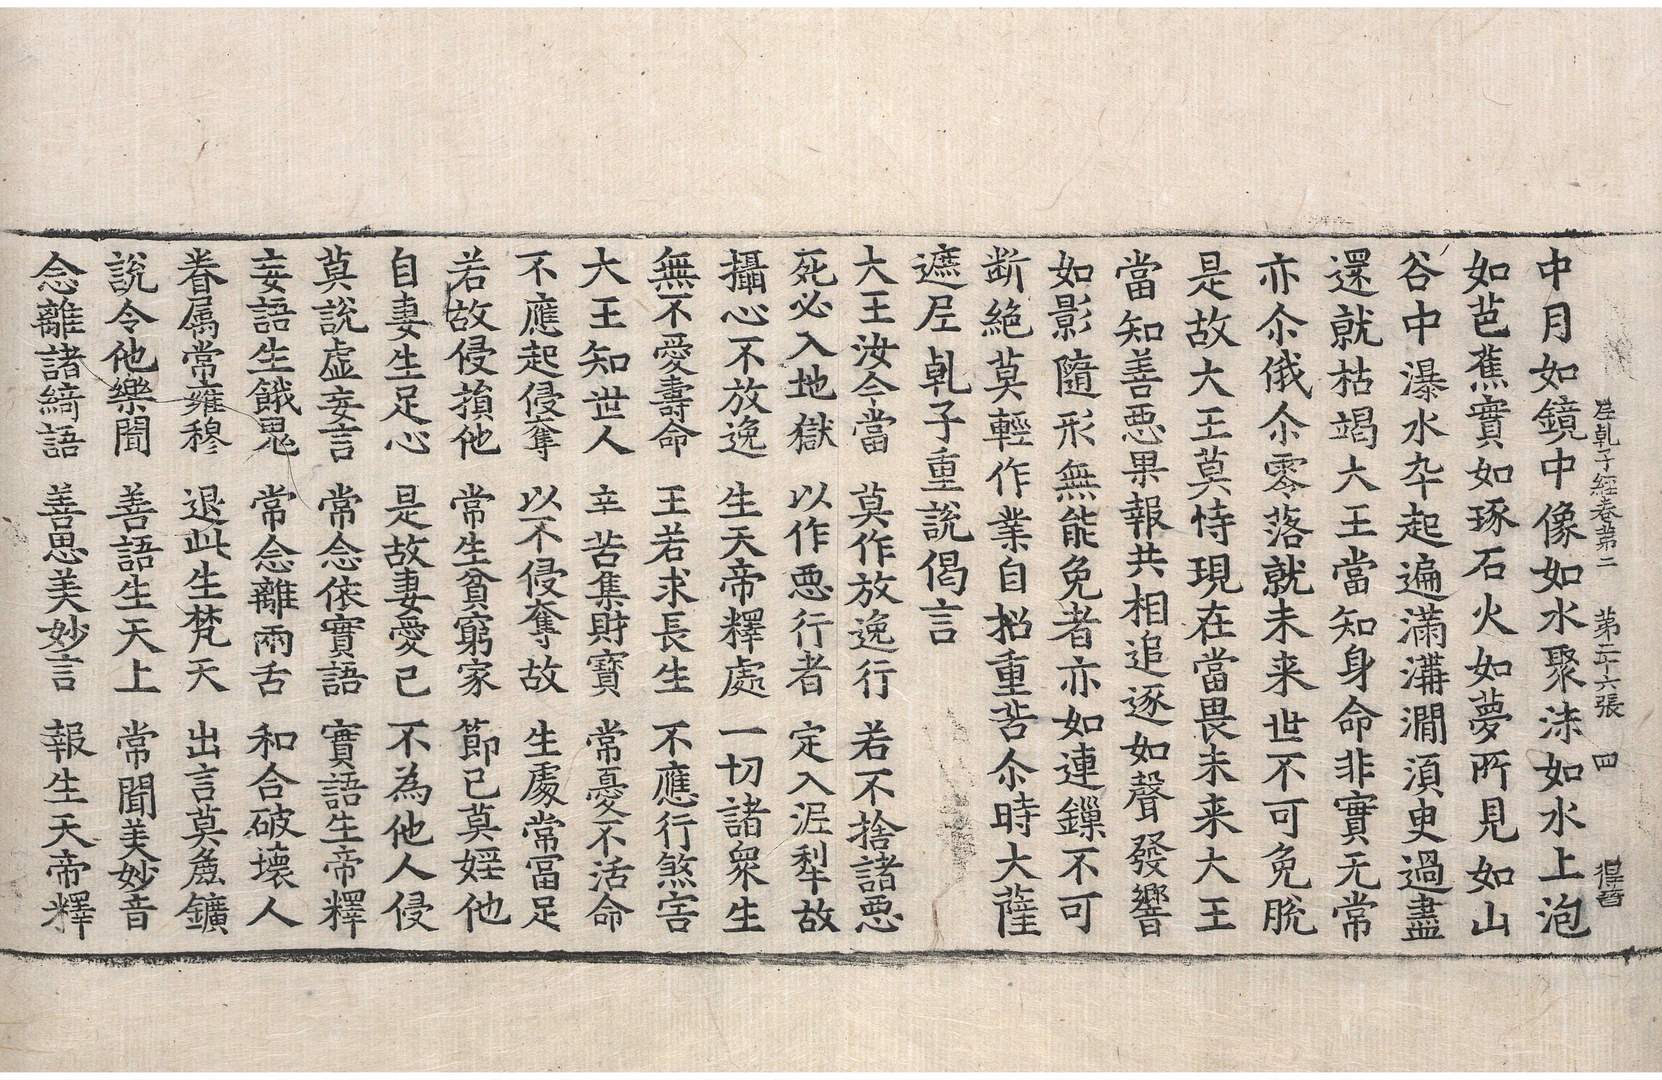 乹子經卷第二　第二十六張　四
中月如鏡中像如水聚沫如水上泡
如芭蕉實如琢石火如夢所見如山
谷中瀑水卒起遍滿溝澗湏臾過盡
還就枯竭大王當知身命非實无常
亦尒俄尒零落就未来世不可免脫
是故大王莫恃現在當畏未来大王
當知善惡果報共相追逐如聲發響
如影隨形無能免者亦如連鏁不可
断絶莫輕作業自招重苦尒時大薩
遮尼乹子重說偈言
大王汝今當　莫作放逸行　若不捨諸惡
死必入地獄　以作惡行者　定入泥犁故
攝心不放逸　生天帝釋處　一切諸衆生
無不愛壽命　王若求長生　不應行煞害
大王知世人　辛苦集財寶　常憂不活命
不應起侵奪　以不侵奪故　生處常冨足
若故侵損他　常生貧窮家　節己莫婬他
自妻生足心　是故妻愛己　不為他人侵
莫說虛妄言　常念依實語　實語生帝釋
妄語生餓鬼　常念離兩舌　和合破壞人
眷属常雍穆　退此生梵天　出言莫麁鑛
說令他樂聞　善語生天上　常聞美妙音
念離諸綺語　善思美妙言　報生天帝釋